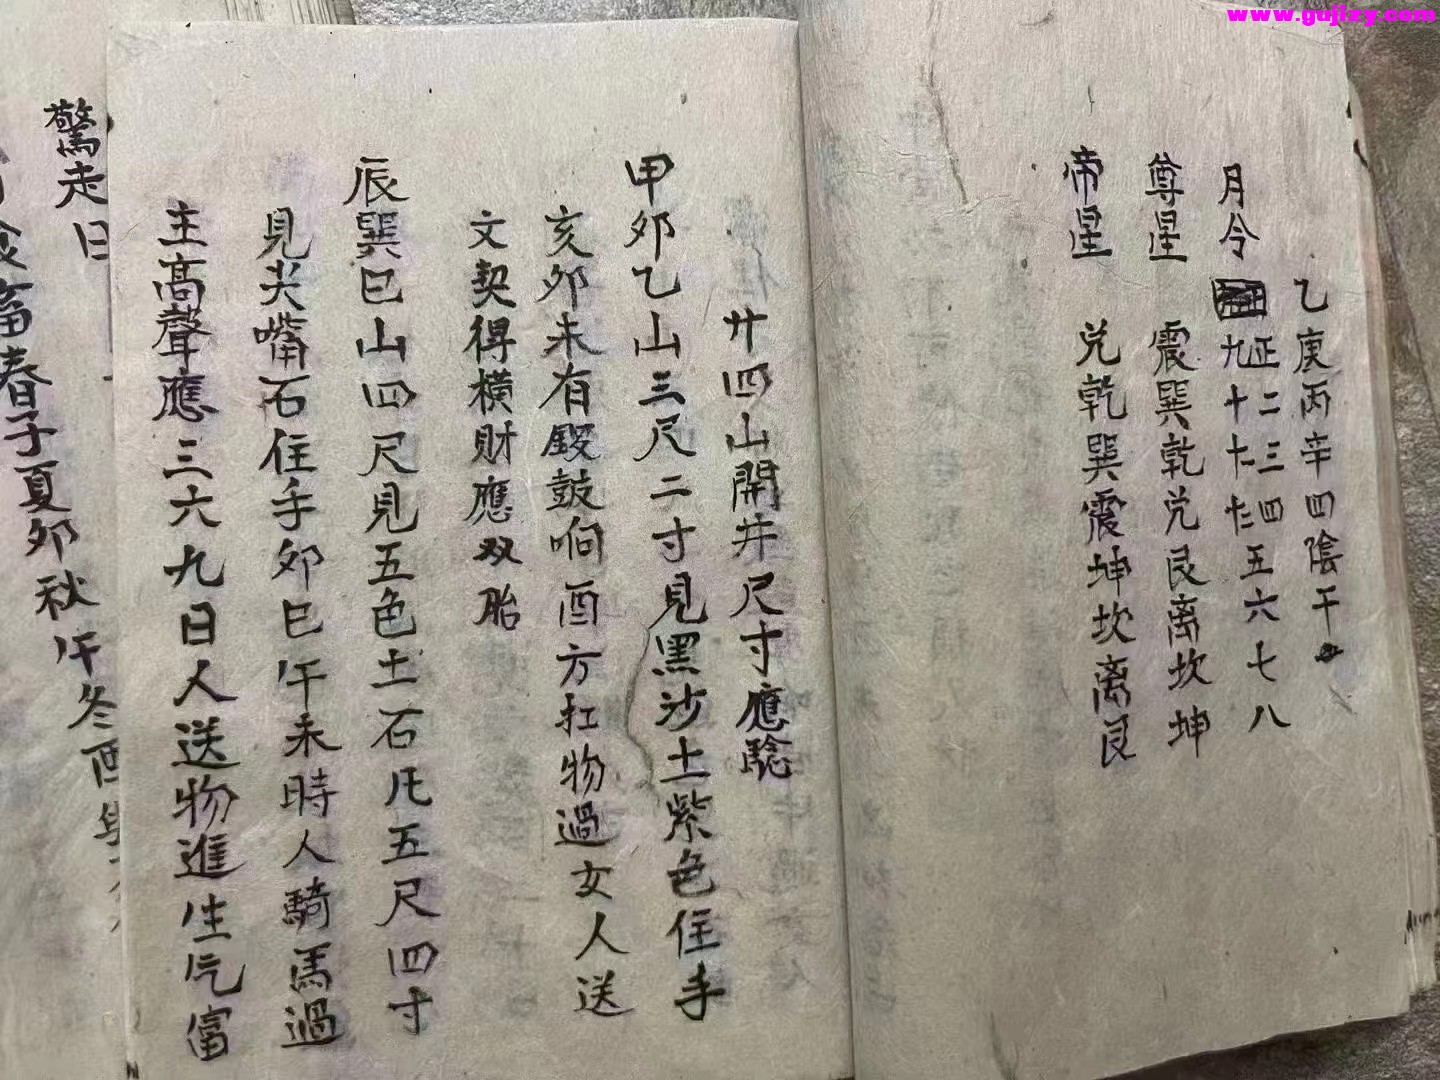 www.gujizy.com
乙庚丙辛四陰干
正二三四五六七八
月令 九十十一十二
尊星 震巽乾兑艮离坎坤
帝星 兑乾巽震坤坎离艮
廿四山開井尺寸應騐
甲卯乙山三尺二寸見黑沙土紫色住手
亥卯未有鍐鼓响酉方扛物過女人送
文契得横財應双胎
辰巽巳山四尺見五色土石圫五尺四寸
見尖嘴石住手卯巳午未時人騎馬過
主高聲應三六九日人送物進生氕富
驚走日
畨春子夏卯秋午冬酉